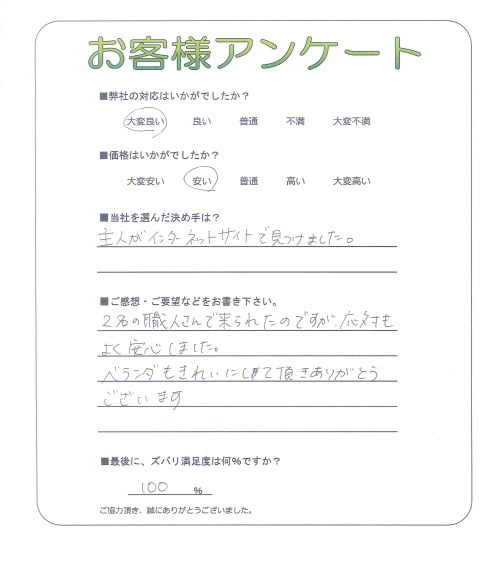 お客様アンケート
■弊社の対応はいかがでしたか？
大変良い 良い 普通 不満 大変不満
■価格はいかがでしたか？
大変安い 安い 普通 高い 大変高い
■当社を選んだ決め手は？
主人がインターネットサイトで見つけました。
■ご感想・ご要望などをお書き下さい。
2名の職人さんで来られたのですが、応対も
よく安心しました。
ベランダもきれいにして頂きありがとう
ございます
■最後に、ズバリ満足度は何%ですか？
100 %
ご協力頂き、誠にありがとうございました。